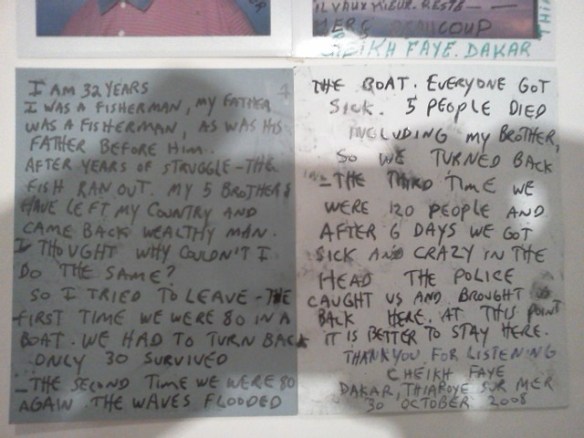 IL VAUX MIEUX. RESTE
MERC BEAUCOUP
CHEIKH FAYE. DAKAR
I AM 32 YEARS
I WAS A FISHERMAN, MY FATHER
WAS A FISHERMAN, AS WAS HIS
FATHER BEFORE HIM.
AFTER YEARS OF STRUGGLE - THE
FISH RAN OUT. MY 5 BROTHERS
HAVE LEFT MY COUNTRY AND
CAME BACK WEALTHY MAN.
I THOUGHT WHY COULDN'T I
DO THE SAME?
SO I TRIED TO LEAVE - THE
FIRST TIME WE WERE 80 IN A
BOAT. WE HAD TO TURN BACK
ONLY 30 SURVIVED
- THE SECOND TIME WE WERE 80
AGAIN THE WAVES FLOODED
THE BOAT. EVERYONE GOT
SICK. 5 PEOPLE DIED
INCLUDING MY BROTHER,
SO WE TURNED BACK
- THE THIRD TIME WE
WERE 120 PEOPLE AND
AFTER 6 DAYS WE GOT
SICK AND CRAZY IN THE
HEAD THE POLICE
CAUGHT US AND BROUGHT
BACK HERE. AT THIS POINT
IT IS BETTER TO STAY HERE.
THANKYOU FOR LISTENING
CHEIKH FAYE
DAKAR, THIAROYE SUR MER
30 OCTOBER 2008